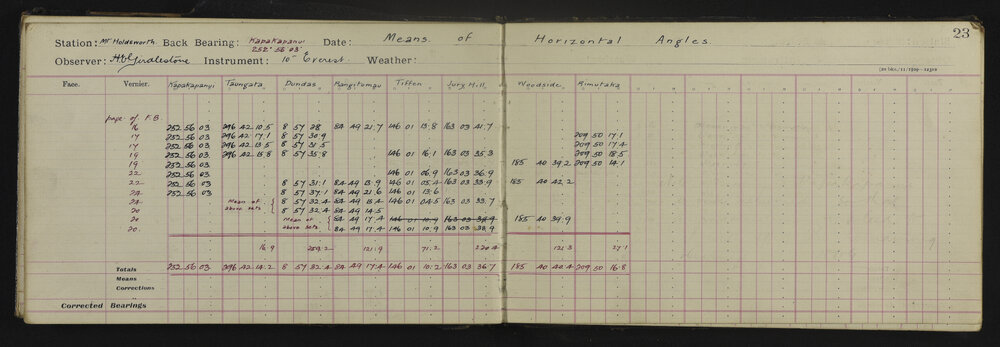 23
Station: Mr Holdsworth Back Bearing: Kapakapanui 252° 56 03 Date: Means of Horizontal Angles.
Observer: H.E. Girdlestone Instrument: 10" Everest. Weather:
Face. Vernier. Kapakapanui Taungata Dundas Rangitumau Tiffen Jury Hill. Woodside Rimutaka
page of F.B.
16 252 56 03 296 42 10.5 8 57 28 84 49 21.7 146 01 13.8 163 03 41.7 209 50 17.1
17 252 56 03 296 42 17.1 8 57 30.9 209 50 17.4
17 252 56 03 296 42 13.5 8 57 31.5 209 50 18.5
19 252 56 03 296 42 15.8 8 57 35.8 146 01 16.1 163 03 35.3 209 50 14.1
19 252 56 03 185 40 39.2
22 252 56 03 146 01 06.9 163 03 36.9
22 252 56 03 8 57 31.1 84 49 13.9 146 01 05.4 163 03 33.9 185 40 42.2
24 252 56 03 8 57 37.1 84 49 21.6 146 01 13.6
24 Mean of 8 57 32.4 84 49 15.4 146 01 04.5 163 03 33.7
20 above sets 8 57 32.4 84 49 14.5
20 Mean of 84 49 17.4 146 01 10.9 163 03 38.9 185 40 39.9
20 above sets 84 49 17.4 146 01 10.9 163 03 38.9
16.9 259.2 121.9 71.2 220.4 121.3 27.1
Totals 252 56 03 296 42 14.2 8 57 32.4 84 49 17.4 146 01 10.2 163 03 36.7 185 40 40.4 209 50 16.8
Means
Corrections
Corrected Bearings